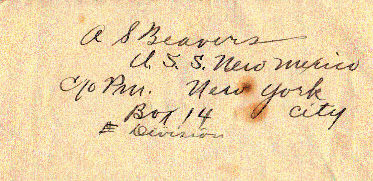 A S Beavers
U. S. S. New Mexico
c/o Pm. New York
Box 14 City
E Division